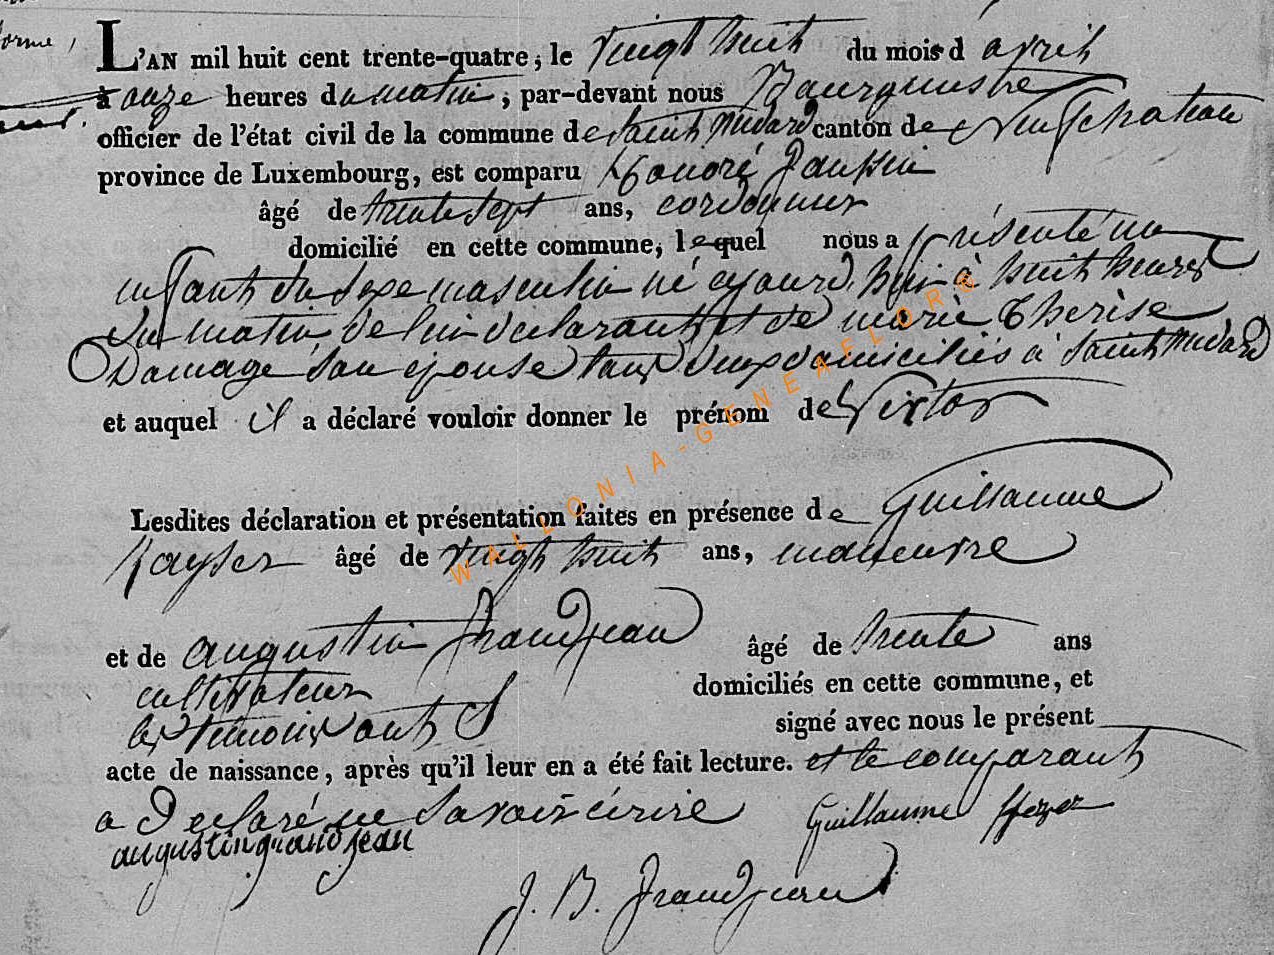 orme,
L'AN mil huit cent trente-quatre, le vingt huit du mois d avril
à onze heures du matin, par-devant nous Bourgmestre
officier de l'état civil de la commune de Saint Médard canton de Neufchateau
province de Luxembourg, est comparu Honoré Jaussin
âgé de trente sept ans, cordonnier
domicilié en cette commune, lequel nous a présenté un
enfant du sexe masculin né cejourd'hui à huit heures
du matin de lui declarant et de marie Therèse
Damage son epouse tous deux domiciliés à Saint Médard
et auquel il a déclaré vouloir donner le prénom de Victor
Lesdites déclaration et présentation faites en présence de Guillaume
âgé de vingt huit ans, manoeuvre
et de augustin Grandjean âgé de trente ans
cultivateur domiciliés en cette commune, et
les temoins ont signé avec nous le présent
acte de naissance, après qu'il leur en a été fait lecture. et le comparant
a Declaré ne savoir écrire Guillaume
augustin grandjean
J. B. Grandjean
WALLONIA-GENEAFLORE